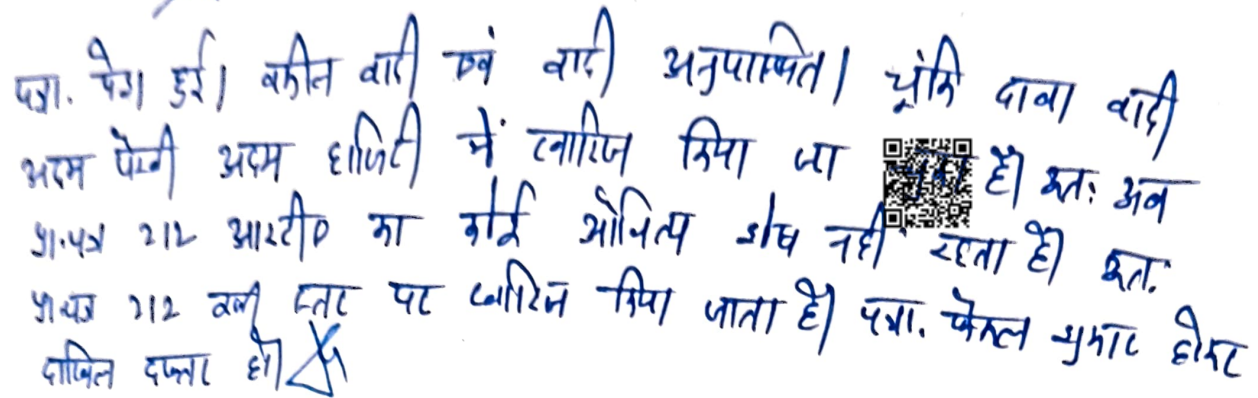 पत्रा. पेश हुई। वकील वादी एवं वादी अनुपस्थित। चूंकि दावा वादी
अदम पैरवी अदम हाजिरी में खारिज किया जा चुका है। अतः अब
प्रा.पत्र 212 आरटीए का कोई औचित्य शेष नहीं रहता है। अतः
प्रा.पत्र 212 इसी स्तर पर खारिज किया जाता है। पत्रा. फैसल शुमार होकर
दाखिल दफ्तर हो।